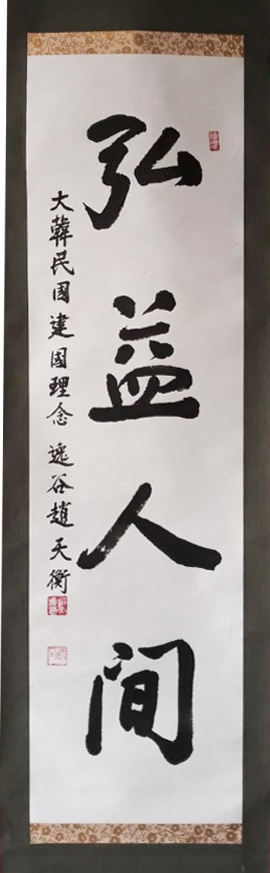 弘益人間
大韓民国建国理念 逸谷趙天衡